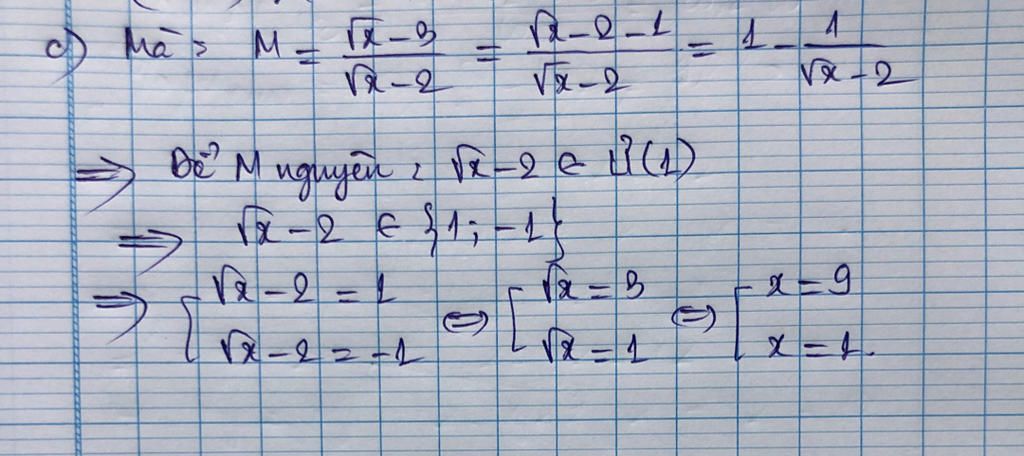 c) Mà: M = \frac{\sqrt{x}-3}{\sqrt{x}-2} = \frac{\sqrt{x}-2-1}{\sqrt{x}-2} = 1 - \frac{1}{\sqrt{x}-2}
⇒ Để M nguyên: √x-2 ∈ Ư(1)
⇒ √x-2 ∈ {1; -1}
⇒ [ √x-2 = 1 ⇔ [ √x = 3 ⇔ [ x = 9
√x-2 = -1 √x = 1 x = 1.